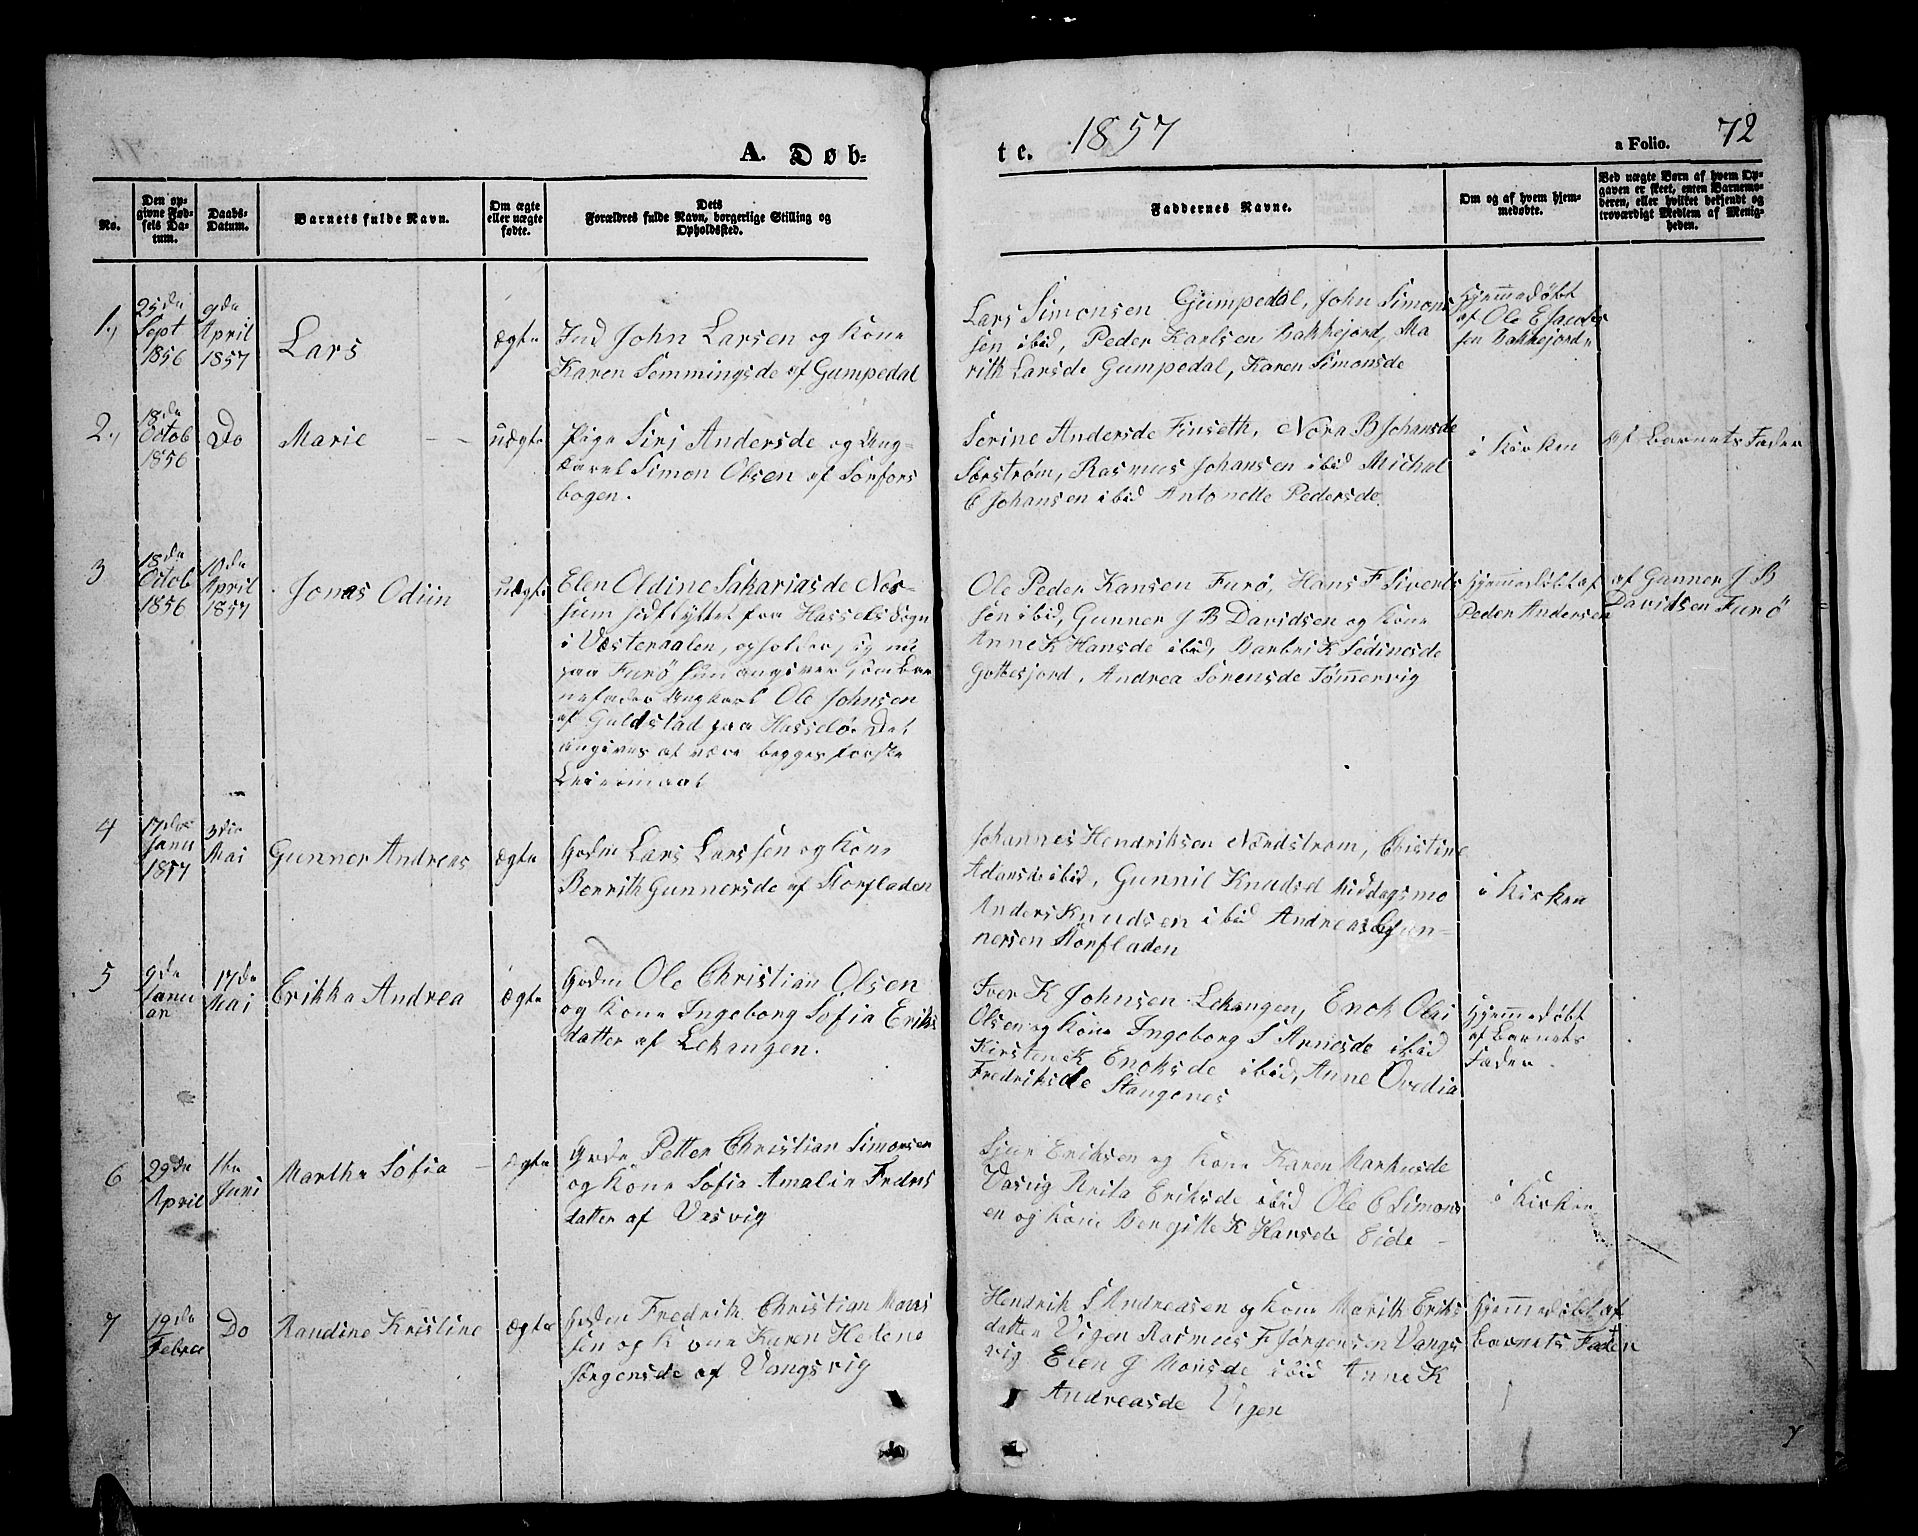 A. Døb-
te.
1857
a Folio. 72
No.
Den op-
givne Fød-
sels Da-
tum.
Daabs-
Datum.
Barnets fulde Navn.
Om ægte
eller uægte
fødte.
Dets
Forældres fulde Navn, borgerlige Stilling og
Opholdssted.
Faddernes Navne.
Om og af hvem hjem-
medøbte.
Ved uægte Børn af hvem Op-
gaven er skeet, enten Barnemo-
deren, eller hvilket bekjendt og
troværdigt Medlem af Menig-
heden.
1.,
25de
Sept
1856
9de
April
1857
Lars
ægte
Ind John Larsen og Kone
Karen Semmingsde af Gumpedal
Lars Simonsen Gumpedal, John Simon
sen ibid, Peder Karlsen Bakkejord, Ma
rith Larsde Gumpedal, Karen Simonsde
Hjemmedøbt
af Ole
sen Bakkejord
2.,
18de
Octob
1856
Do
Marie
uægte
Pige Siri Andersde og Ung-
karl Simon Olsen af Sørfors
bogen.
Serine Andersde Finseth, Nora B Johansde
Sørstrøm, Rasmus Johansen ibid Michal
E Johansen ibid Antonette Pedersde.
i Kirken
af Barnets Fader
3
18de
Octob
1856
10de
April
1857
Jonas Odiin
uægte
Elen Oldine Sakariasde
indflyttet fra Hassels Sogn
i Vesteraalen, opholder sig nu
paa Furø hun angiver som Bar
nefader Ungkarl Ole Johnsen
af Guldstad paa Hasselø. Det
angives at være begges første
Leiermaal
Ole Peder Hansen Furø, Hans F Siverts
sen ibid, Gunner J B Davidsen og Kone
Anne K Hansde ibid, Barbri K Sedinesde
Gottesjord, Andrea Sørensde Tømmervig
Hjemmedøbt af
Peder Andersen
af Gunner J B
Davidsen Furø
4
17de
Janu
1857
3die
Mai
Gunner Andreas
ægte
Gbdm Lars Larssen og Kone
Berrith Gunnersde af Storfladen
Johannes Hendriksen Nordstrøm, Christine
Adamsde ibid, Gunnil Knudsd Middagsmo
Anders Knudsen ibid Andreas Gun-
nersen Storfladen
i Kirken
5
9de
Janu
ar
17de
Mai
Erikka Andrea
ægte
Gbdm Ole Christian Olsen
og Kone Ingeborg Sofia Eriks
datter af Lekangen.
Iver K Johnsen Lekangen, Enok Olai
Olsen og Kone Ingeborg S Arnesde ibid
Kirsten K Enoksde ibid, Anne Ovedia
Fredriksde Stangenes
Hjemmedøbt
af Barnets
Fader.
6
29de
April
1ste
Juni
Martha Sofia
ægte
Petter Christian Simonsen
og Kone Sofia Amalia Fredriks
datter af Vasvig
Sjur Eriksen og Kone Karen Markusde
Vasvig Rrita Eriksde ibid Ole E Simons
en og Kone Bergitte K Hansde Eide
i Kirken
7
19de
Febru
Do
Randine Kristine
ægte
Fredrik Christian Mons
sen og Kone Karen Helene
Jørgensde af Vangsvig
Hendrik S Andreasen og Kone Marith Eriks
datter Vigen Rasmus F Jørgensen Vangs
vig Elen J Monsde ibid Anne K
Andreasde Vigen
Hjemmedøbt af
barnets Fader